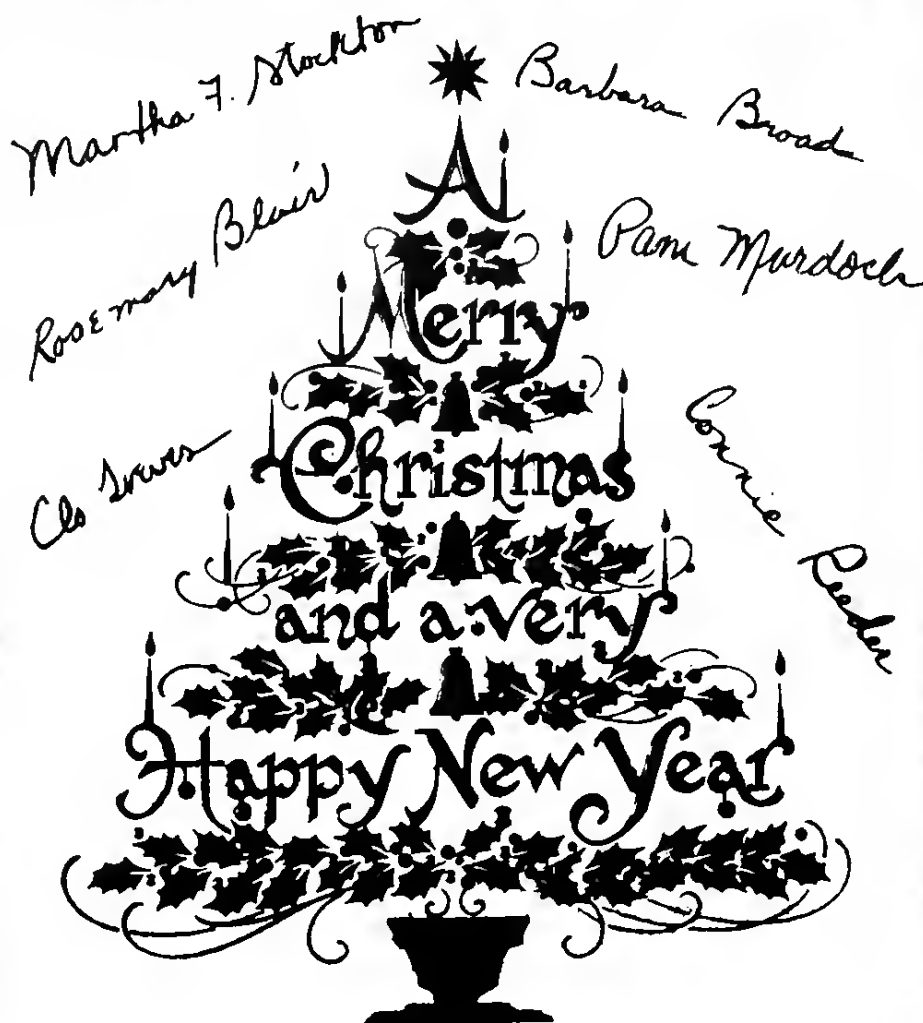 Martha F. Stockton
Barbara Broad
Rosemary Blair
Pam Murdoch
Connie Reeder
A
Merry
Christmas
and a very
Happy New Year